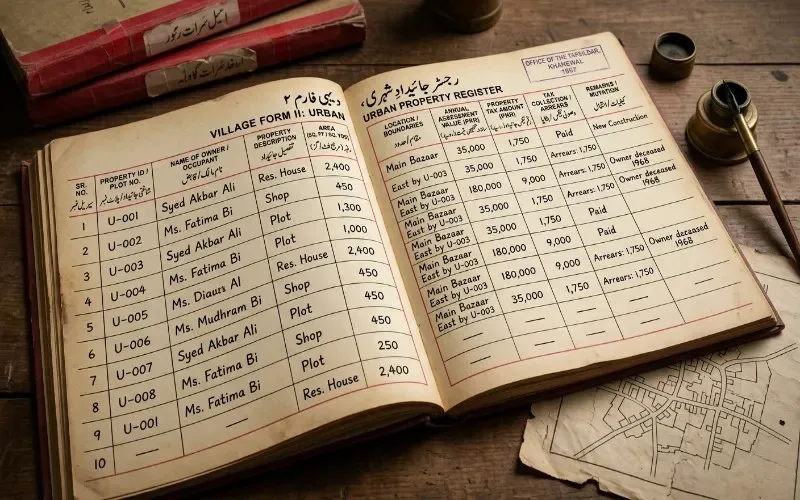 دیہی فارم ٢
VILLAGE FORM II: URBAN
SR. NO. PROPERTY ID / PLOT NO. NAME OF OWNER / OCCUPANT PROPERTY DESCRIPTION AREA
1 U-001 Syed Akbar Ali Res. House 2,400
2 U-002 Ms. Fatima Bi Shop 450
3 U-003 Syed Akbar Ali Plot 1,300
4 U-004 Ms. Fatima Bi Plot 1,000
5 U-005 Ms. Diaurs Al Res. House 2,400
6 U-006 Ms. Mudhram Bi Shop 450
7 U-007 Syed Akbar Ali Plot 450
8 U-008 Ms. Fatima Bi Shop 250
9 U-001 Ms. Fatima Bi Plot 2,400
10 — — Res. House
رجسٹر جائیداد شہری،
URBAN PROPERTY REGISTER
OFFICE OF THE TAHSILDAR,
KHANEWAL
1967
LOCATION / BOUNDARIES ANNUAL ASSESSMENT VALUE (PKR) PROPERTY TAX AMOUNT (PKR) TAX COLLECTION / ARREARS REMARKS / MUTATION
Main Bazaar 35,000 1,750 Paid New Construction
East by U-003 35,000 1,750 Arrears: 1,750 Owner deceased 1968
Main Bazaar East by U-003 180,000 9,000 Arrears: 1,750 Owner deceased 1968
Main Bazaar East by U-003 35,000 1,750 Arrears: 1,750
Main Bazaar East by U-003 35,000 1,750 Paid
Main Bazaar East by U-003 180,000 9,000 Paid
Main Bazaar East by U-003 180,000 9,000 Arrears: 1,750 Owner deceased 1968
Main Bazaar East by U-003 35,000 1,750 Arrears: 1,750
— — — — —
— — — — —